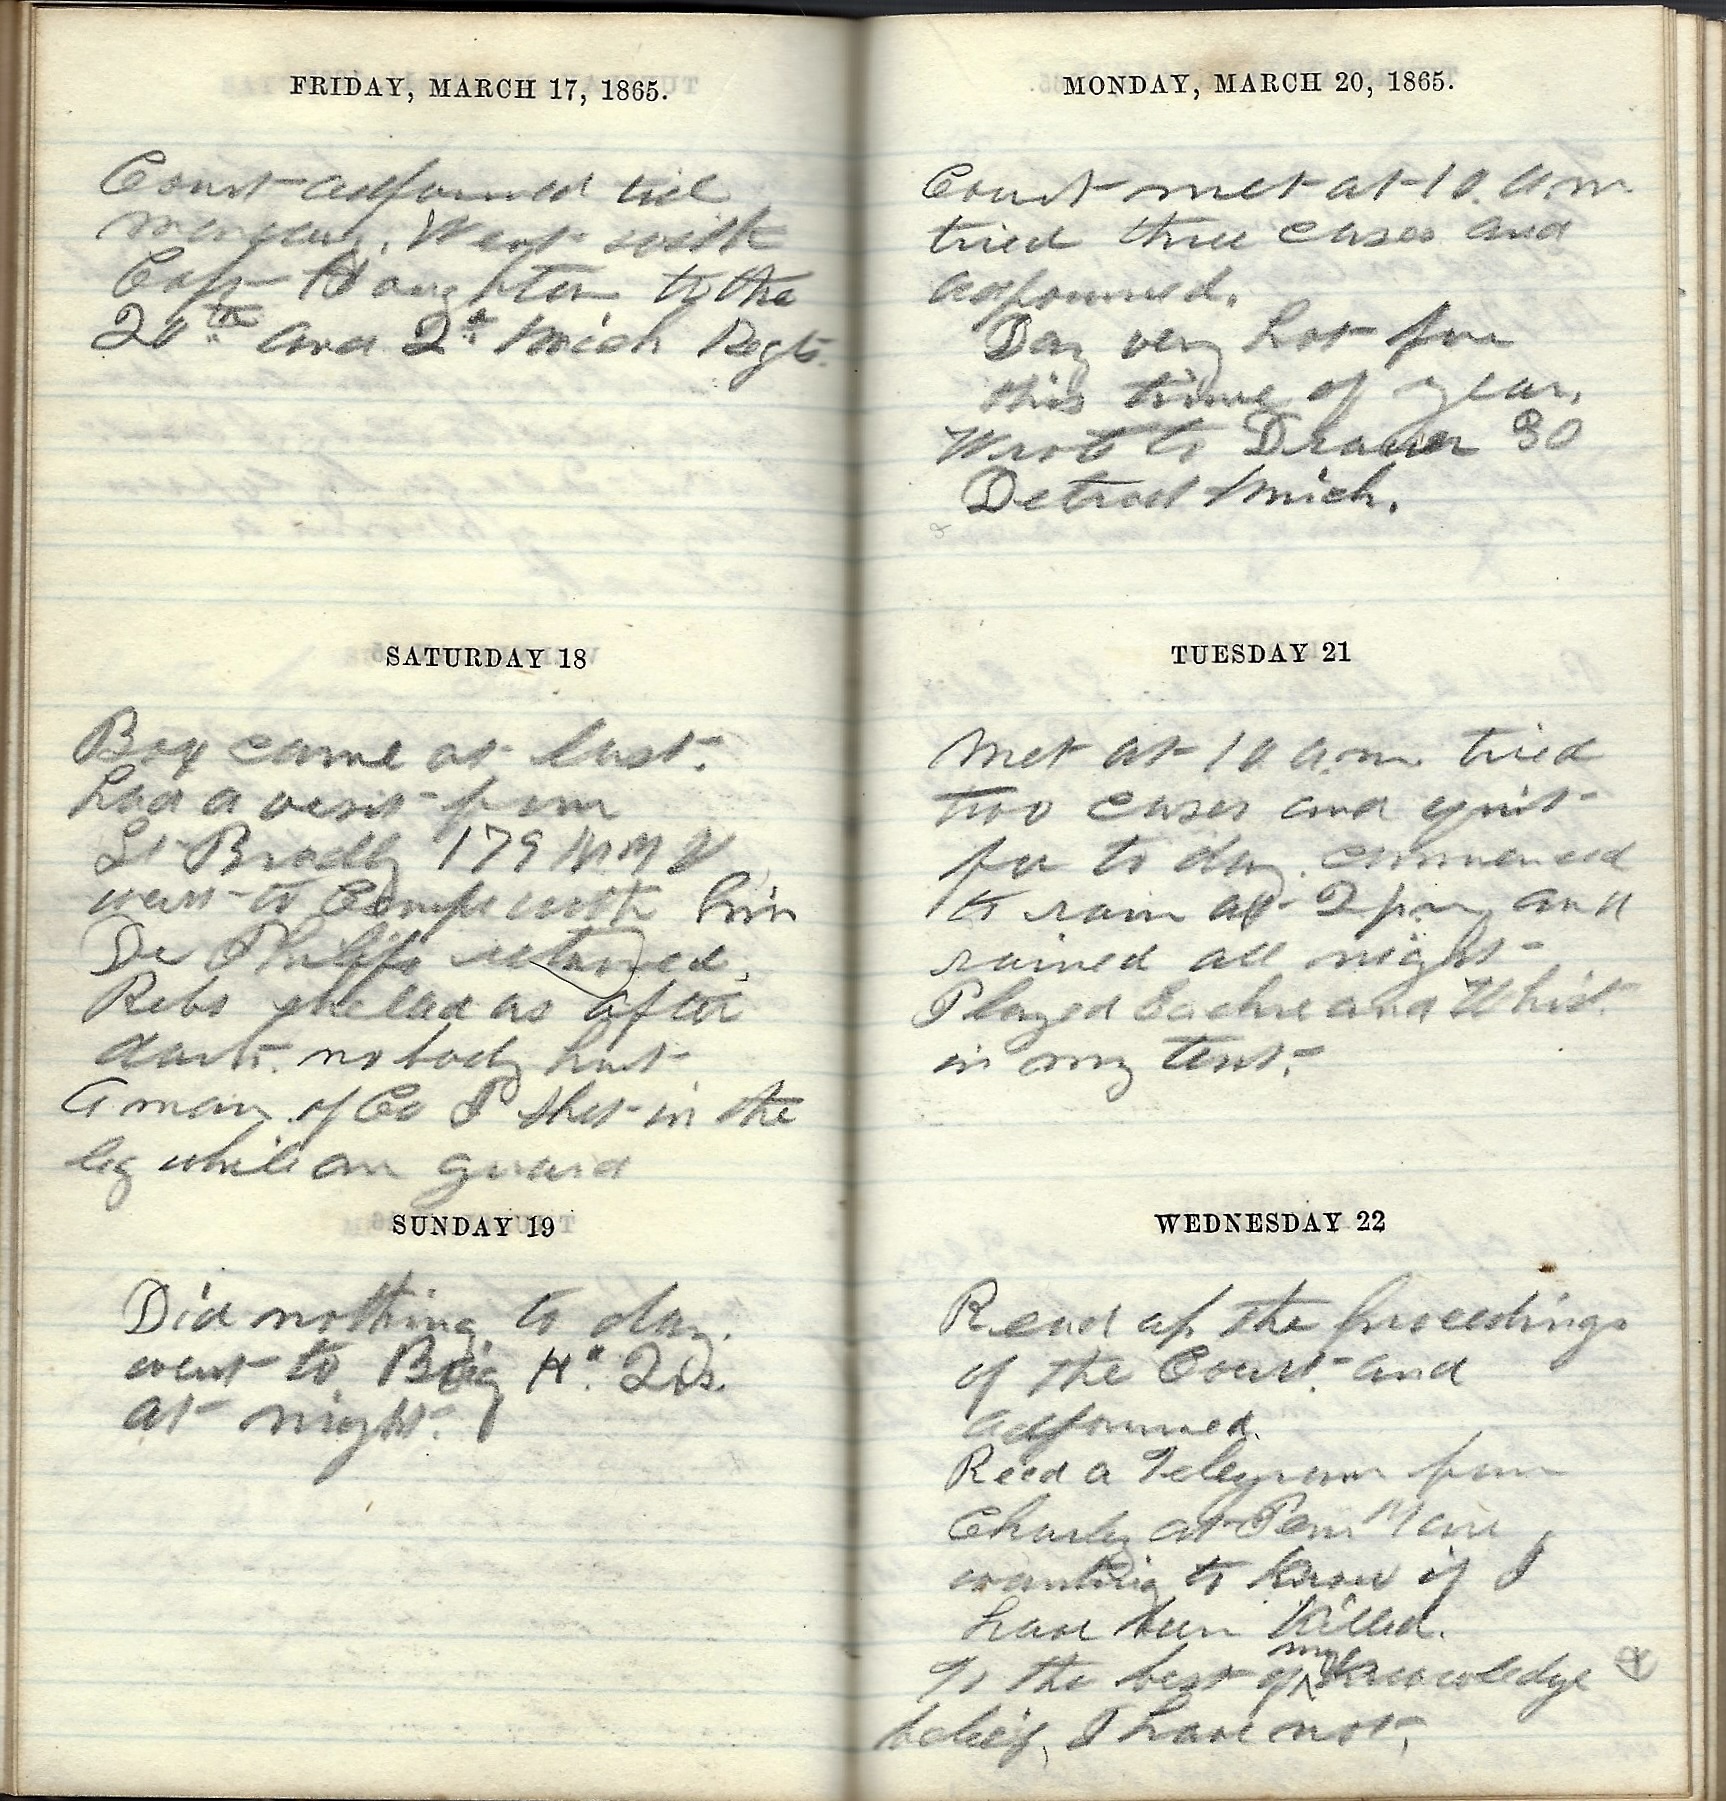 FRIDAY, MARCH 17, 1865.
Court adjourned till
monday. Went with
Capt Haughton to the
20th and 2d Mich Regts.
SATURDAY 18
Box came at last.
had a visit from
Lt Bradly 179 N.Y.V
went to Camp with him
De Philip returned.
Rebs shelled us after
dark. nobody hurt
A man of Co I shot in the
leg while on guard
SUNDAY 19
Did nothing to day.
went to Brig Hd Qrs.
at night.
MONDAY, MARCH 20, 1865.
Court met at 10. a.m
tried three cases and
adjourned.
Day very hot for
this time of year.
Wrote to Drawer 30
Detroit Mich.
TUESDAY 21
Met at 10 a.m. tried
two cases and quit
for to day. commenced
to rain at 2 p.m. and
rained all night
Played Euchre and Whist
in my tent.
WEDNESDAY 22
Read up the proceedings
of the Court and
adjourned.
Recd a Telegram from
Charley at
wanting to know if I
have been killed.
To the best of my knowledge &
belief, I have not.